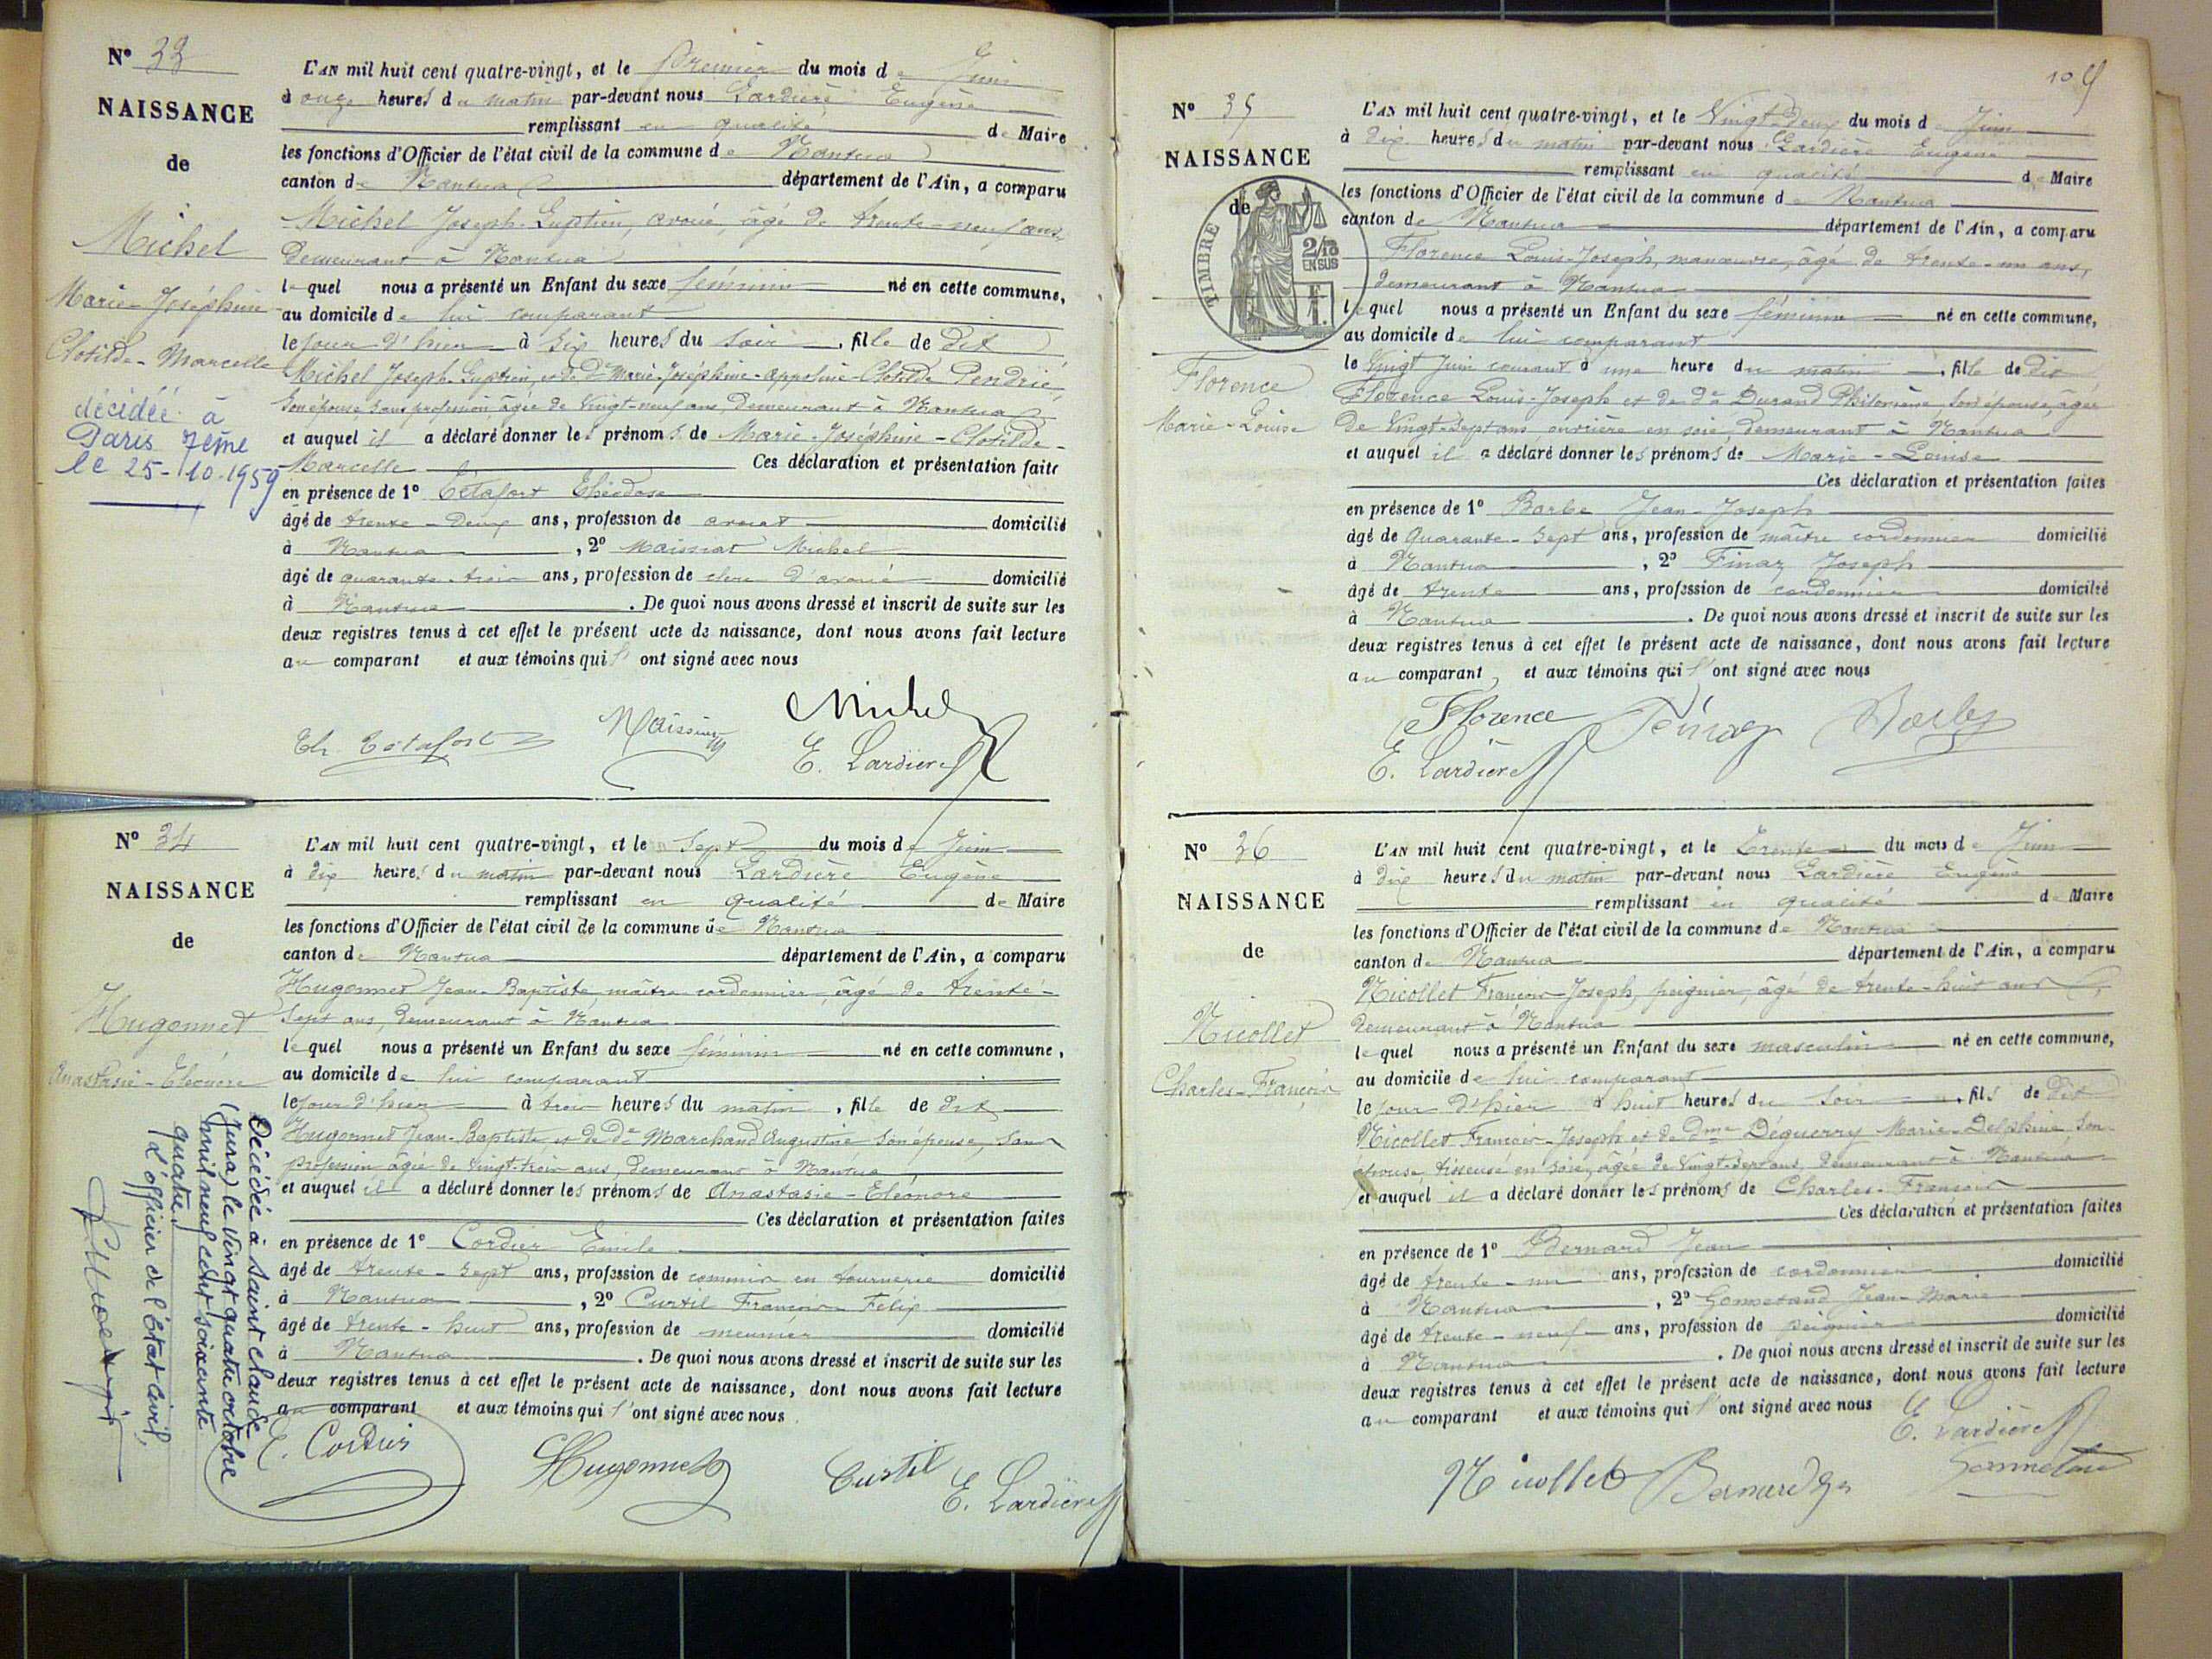 N° 33
NAISSANCE
de
Michel
Marie-Joséphine
Clotilde-Marcelle
décédée à
Paris 7ème
le 25-10-1959
L'AN mil huit cent quatre-vingt, et le Premier du mois de Juin
à onze heures du matin par-devant nous Lardière Eugène
remplissant en qualité de Maire
les fonctions d'Officier de l'état civil de la commune de Nantua
canton de Nantua département de l'Ain, a comparu
Michel Joseph avoué, âgé de trente-neuf ans,
demeurant à Nantua
lequel nous a présenté un Enfant du sexe féminin né en cette commune,
au domicile de lui comparant
le jour d'hier à six heures du soir, fille de dit
Michel Joseph et de De Marie-Joséphine Clotilde Pendrié
son épouse sans profession âgée de vingt-neuf ans, demeurant à Nantua
et auquel il a déclaré donner les prénoms de Marie-Joséphine-Clotilde-
Marcelle Ces déclaration et présentation faite
en présence de 1° Tétafort Théodose
âgé de trente-deux ans, profession de avocat domicilié
à Nantua, 2° Maissiat Michel
âgé de quarante-trois ans, profession de clerc d'avoué domicilié
à Nantua. De quoi nous avons dressé et inscrit de suite sur les
deux registres tenus à cet effet le présent acte de naissance, dont nous avons fait lecture
au comparant et aux témoins qui l'ont signé avec nous
Th. Tétafort Maissiat Michel
E. Lardière
N° 34
NAISSANCE
de
Hugonnet
Anastasie-Eléonore
Décédée à Saint Claude
(Jura) le vingt quatre octobre
mil neuf cent soixante
quatre.
L'officier de l'état civil,
L'AN mil huit cent quatre-vingt, et le Sept du mois de Juin
à dix heures du matin par-devant nous Lardière Eugène
remplissant en qualité de Maire
les fonctions d'Officier de l'état civil de la commune de Nantua
canton de Nantua département de l'Ain, a comparu
Hugonnet Jean-Baptiste, maître cordonnier, âgé de trente-
sept ans, demeurant à Nantua
lequel nous a présenté un Enfant du sexe féminin né en cette commune,
au domicile de lui comparant
le jour d'hier à trois heures du matin, fille de dit
Hugonnet Jean-Baptiste et de De Marchand Augustine son épouse, sans
profession âgée de vingt-trois ans, demeurant à Nantua
et auquel il a déclaré donner les prénoms de Anastasie-Eléonore
Ces déclaration et présentation faites
en présence de 1° Cordier Emile
âgé de trente-sept ans, profession de commis en tournerie domicilié
à Nantua, 2° Curtil François Félix
âgé de trente-huit ans, profession de meunier domicilié
à Nantua. De quoi nous avons dressé et inscrit de suite sur les
deux registres tenus à cet effet le présent acte de naissance, dont nous avons fait lecture
au comparant et aux témoins qui l'ont signé avec nous
E. Cordier Hugonnet Curtil E. Lardière
N° 35
NAISSANCE
de
TIMBRE
2/10
EN SUS
Florence
Marie-Louise
L'AN mil huit cent quatre-vingt, et le Vingt-Deux du mois de Juin
à dix heures du matin par-devant nous Lardière Eugène
remplissant en qualité de Maire
les fonctions d'Officier de l'état civil de la commune de Nantua
canton de Nantua département de l'Ain, a comparu
Florence Louis-Joseph, manœuvre, âgé de trente-un ans,
demeurant à Nantua
lequel nous a présenté un Enfant du sexe féminin né en cette commune,
au domicile de lui comparant
le Vingt Juin courant à une heure du matin, fille de dit
Florence Louis-Joseph et de De Durand Philomène, son épouse, âgée
de Vingt-sept ans ouvrière en soie, demeurant à Nantua
et auquel il a déclaré donner les prénoms de Marie-Louise
Ces déclaration et présentation faites
en présence de 1° Barbe Jean-Joseph
âgé de Quarante-Sept ans, profession de maître cordonnier domicilié
à Nantua, 2° Finaz Joseph
âgé de trente ans, profession de cordonnier domicilié
à Nantua. De quoi nous avons dressé et inscrit de suite sur les
deux registres tenus à cet effet le présent acte de naissance, dont nous avons fait lecture
au comparant, et aux témoins qui l'ont signé avec nous
Florence Finaz Barbe
E. Lardière
N° 36
NAISSANCE
de
Nicollet
Charles-François
L'AN mil huit cent quatre-vingt, et le Trente du mois de Juin
à dix heures du matin par-devant nous Lardière Eugène
remplissant en qualité de Maire
les fonctions d'Officier de l'état civil de la commune de Nantua
canton de Nantua département de l'Ain, a comparu
Nicollet François-Joseph, peignier, âgé de trente-huit ans,
demeurant à Nantua
lequel nous a présenté un Enfant du sexe masculin né en cette commune,
au domicile de lui comparant
le jour d'hier à huit heures du soir, fils de dit
Nicollet François-Joseph et de Dme Déguerry Marie-Delphine son
épouse, tisseuse en soie, âgée de Vingt-sept ans, demeurant à Nantua
et auquel il a déclaré donner les prénoms de Charles-François
Ces déclaration et présentation faites
en présence de 1° Bernard Jean
âgé de trente-un ans, profession de cordonnier domicilié
à Nantua, 2° Gonnetand Jean-Marie
âgé de trente-neuf ans, profession de peignier domicilié
à Nantua. De quoi nous avons dressé et inscrit de suite sur les
deux registres tenus à cet effet le présent acte de naissance, dont nous avons fait lecture
au comparant et aux témoins qui l'ont signé avec nous
E. Lardière
Nicollet Bernard